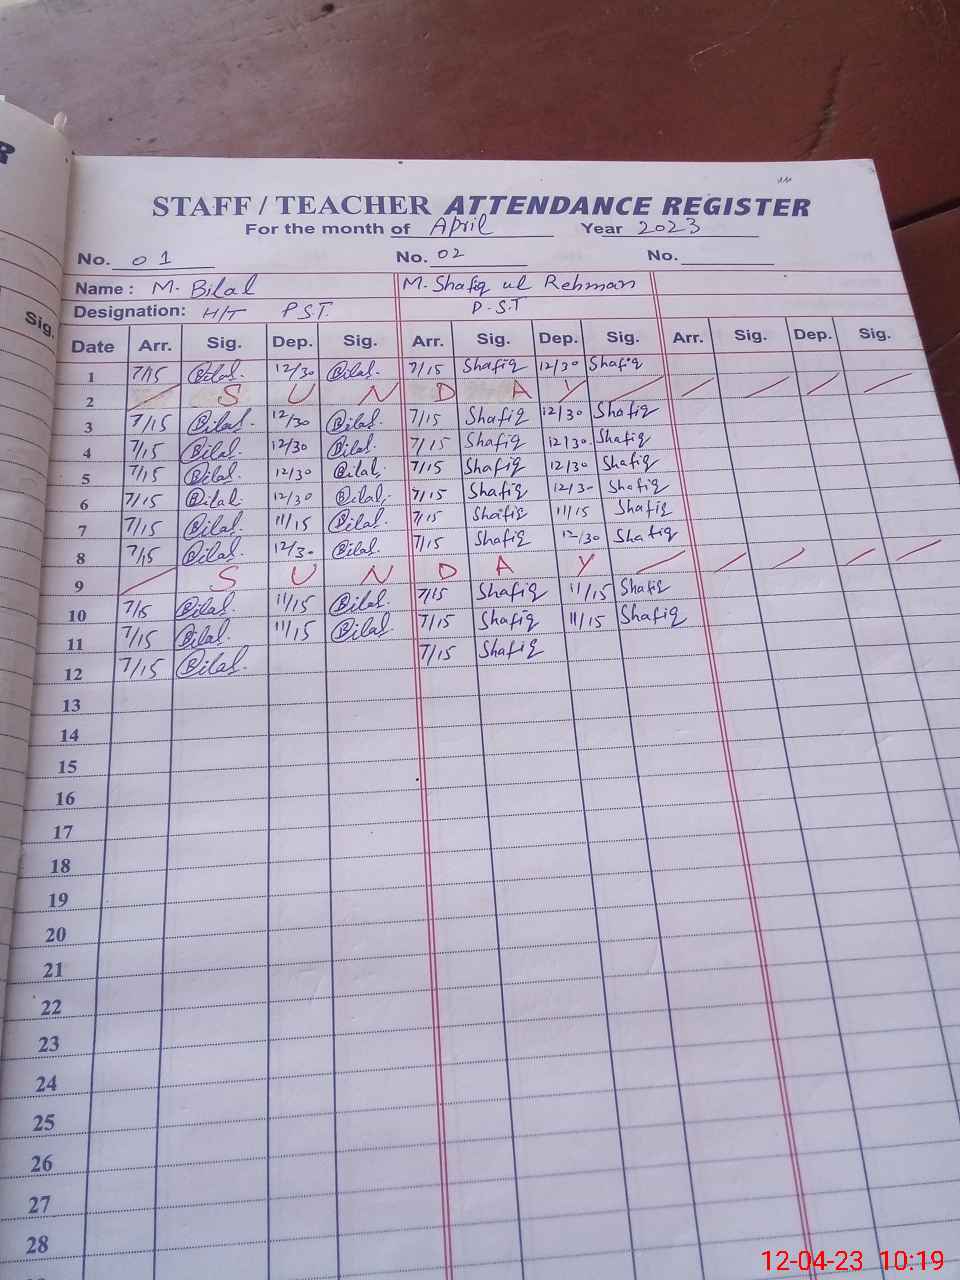 R
Sig.
STAFF / TEACHER ATTENDANCE REGISTER
For the month of April Year 2023
No. 01 No. 02 No.
Name : M. Bilal M. Shafiq ul Rehman
Designation: H/T P.S.T. P.S.T
Date Arr. Sig. Dep. Sig. Arr. Sig. Dep. Sig. Arr. Sig. Dep. Sig.
1 7/15 Bilal. 12/30 Bilal. 7/15 Shafiq 12/30 Shafiq
2 S U N D A Y
3 7/15 Bilal. 12/30 Bilal. 7/15 Shafiq 12/30 Shafiq
4 7/15 Bilal. 12/30 Bilal. 7/15 Shafiq 12/30 Shafiq
5 7/15 Bilal. 12/30 Bilal. 7/15 Shafiq 12/30 Shafiq
6 7/15 Bilal. 12/30 Bilal. 7/15 Shafiq 12/30 Shafiq
7 7/15 Bilal. 11/15 Bilal. 7/15 Shafiq 11/15 Shafiq
8 7/15 Bilal. 12/30 Bilal. 7/15 Shafiq 12/30 Shafiq
9 S U N D A Y
10 7/15 Bilal. 11/15 Bilal. 7/15 Shafiq 11/15 Shafiq
11 7/15 Bilal. 11/15 Bilal. 7/15 Shafiq 11/15 Shafiq
12 7/15 Bilal. 7/15 Shafiq
13
14
15
16
17
18
19
20
21
22
23
24
25
26
27
28
12-04-23 10:19